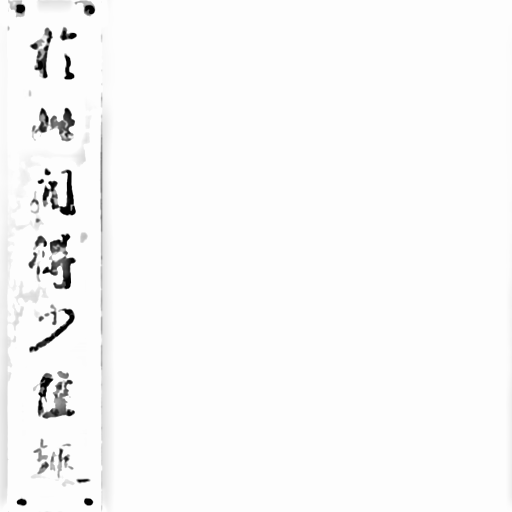 於此間得少佳趣